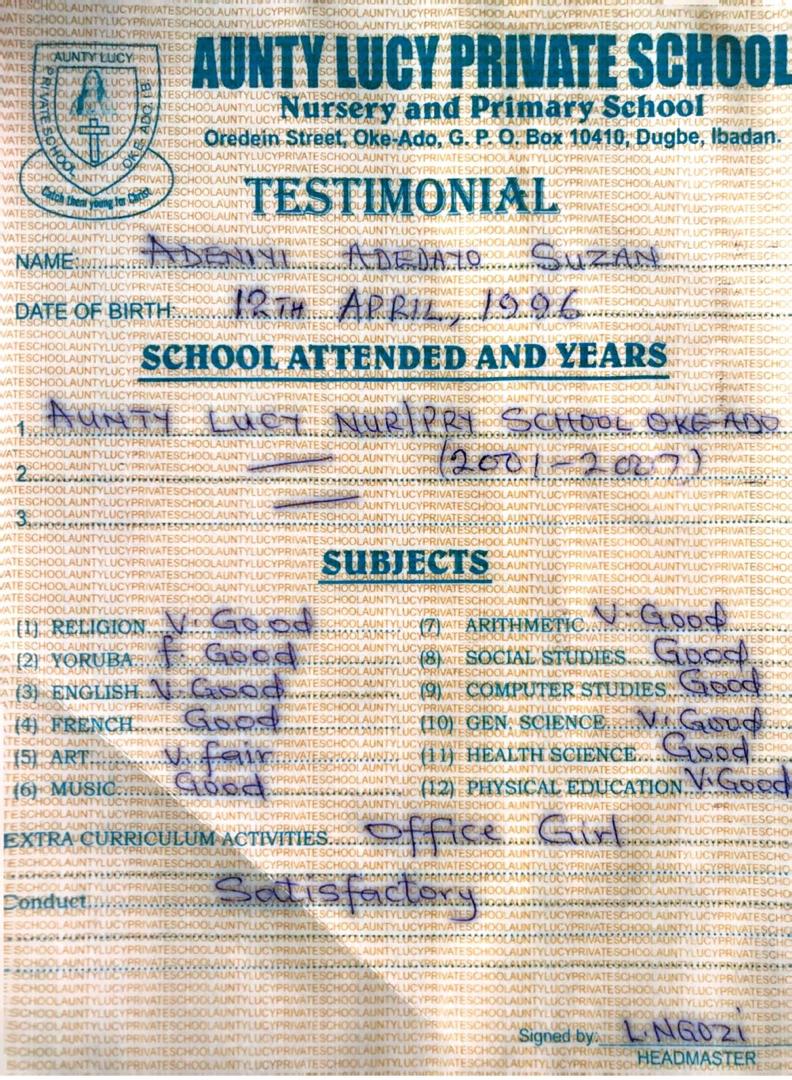 AUNTY LUCY
PRIVATE SCHOOL
OKE-ADO, IB
Catch them young for Christ
AUNTY LUCY PRIVATE SCHOOL
Nursery and Primary School
Oredein Street, Oke-Ado, G. P. O. Box 10410, Dugbe, Ibadan.
TESTIMONIAL
NAME: ADENIYI ADEDAYO SUZAN
DATE OF BIRTH: 12TH APRIL, 1996
SCHOOL ATTENDED AND YEARS
1. AUNTY LUCY NUR/PRY SCHOOL OKE-ADO
2. (2001-2007)
3.
SUBJECTS
(1) RELIGION V. Good
(2) YORUBA F. Good
(3) ENGLISH V. Good
(4) FRENCH Good
(5) ART V. fair
(6) MUSIC Good
(7) ARITHMETIC V. Good
(8) SOCIAL STUDIES Good
(9) COMPUTER STUDIES Good
(10) GEN. SCIENCE V. Good
(11) HEALTH SCIENCE Good
(12) PHYSICAL EDUCATION V. Good
EXTRA CURRICULUM ACTIVITIES Office Girl
Conduct Satisfactory
Signed by: L. NGOZI
HEADMASTER